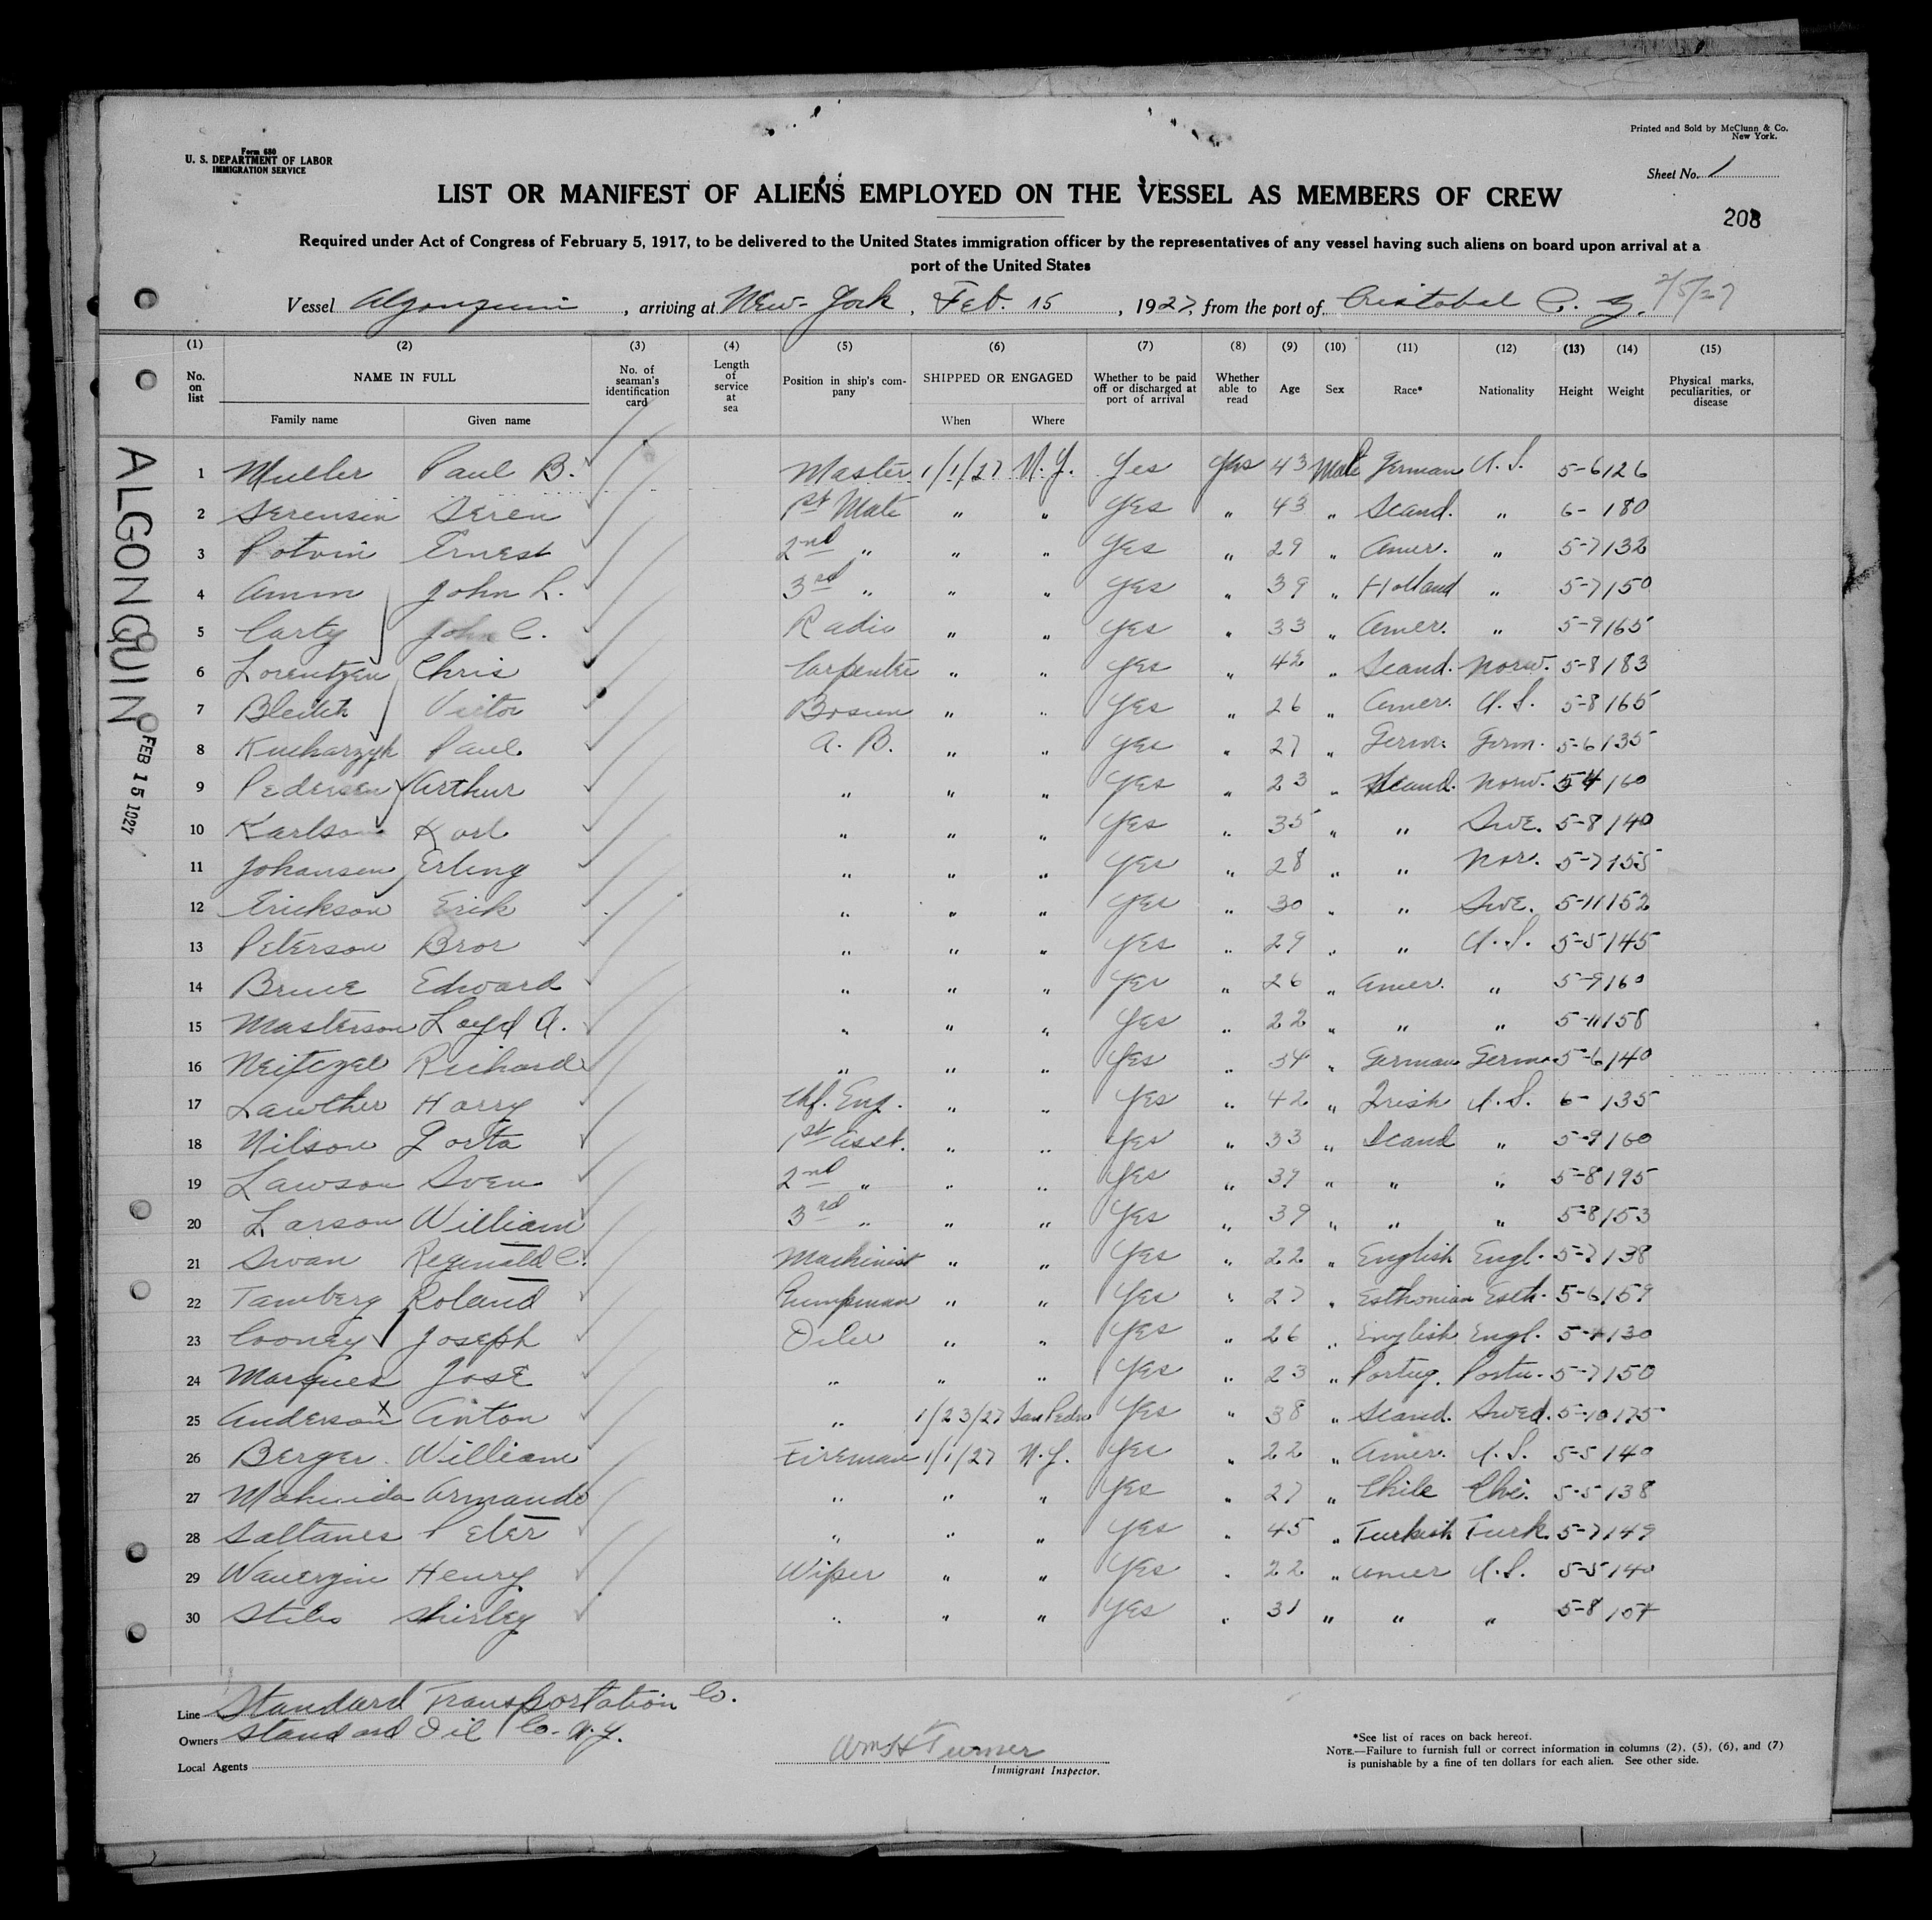 Form 680
U. S. DEPARTMENT OF LABOR
IMMIGRATION SERVICE
Printed and Sold by McClunn & Co.
New York.
Sheet No. 1
LIST OR MANIFEST OF ALIENS EMPLOYED ON THE VESSEL AS MEMBERS OF CREW
208
Required under Act of Congress of February 5, 1917, to be delivered to the United States immigration officer by the representatives of any vessel having such aliens on board upon arrival at a
port of the United States
Vessel Algonquin, arriving at New-York, Feb. 15, 1927, from the port of Cristobal C. Z. 2/5/27
(1) (2) (3) (4) (5) (6) (7) (8) (9) (10) (11) (12) (13) (14) (15)
No. on list NAME IN FULL No. of seaman's identification card Length of service at sea Position in ship's company SHIPPED OR ENGAGED Whether to be paid off or discharged at port of arrival Whether able to read Age Sex Race* Nationality Height Weight Physical marks, peculiarities, or disease
Family name Given name When Where
ALGONQUIN FEB 15 1927
1 Muller Paul B. Master 1/1/27 N.Y. Yes Yes 43 Male German U.S. 5-6 126
2 Serensen Seren 1st Mate " " Yes " 43 " Scand. " 6- 180
3 Potvin Ernest 2nd " " " Yes " 29 " Amer. " 5-7 132
4 Amm John L. 3rd " " " Yes " 39 " Holland " 5-7 150
5 Carty John C. Radio " " Yes " 33 " Amer. " 5-9 165
6 Lorentzen Chris Carpentre " " Yes " 42 " Scand. Norw. 5-8 183
7 Victor Bosun " " Yes " 26 " Amer. U.S. 5-8 165
8 Kucharzyk Paul A. B. " " Yes " 27 " Germ. Germ. 5-6 135
9 Pedersen Arthur " " " Yes " 23 " Scand. Norw. 5 4 160
10 Karlson Karl " " " Yes " 35 " " Swe. 5-8 140
11 Johansen Erling " " " Yes " 28 " " Nor. 5-7 155
12 Erickson Erik " " " Yes " 30 " " Swe. 5-11 152
13 Peterson Bror " " " Yes " 29 " " U.S. 5-5 145
14 Bruce Edward " " " Yes " 26 " Amer. " 5-9 160
15 Masterson Loyd A. " " " Yes " 22 " " " 5-11 158
16 Neitczel Richard " " " Yes " 34 " German Germ. 5-6 140
17 Lawther Harry Chf. Eng. " " Yes " 42 " Irish U.S. 6- 135
18 Nilson Gosta 1st Asst. " " Yes " 33 " Scand " 5-9 160
19 Lawson Sven 2nd " " " Yes " 39 " " " 5-8 195
20 Larson William 3rd " " " Yes " 39 " " " 5-8 153
21 Swan Reginald C. Machinist " " Yes " 22 " English Engl. 5-7 138
22 Tamberg Roland Pumpman " " Yes " 27 " Esthonian Esth. 5-6 159
23 Cooney Joseph Oiler " " Yes " 26 " English Engl. 130
24 Marques José " " " Yes " 23 " Portug. Portu. 5-7 150
25 Anderson x Anton " 1/23/27 San Pedro Yes " 38 " Scand. Swed. 5-10 175
26 Berger William Fireman 1/1/27 N.Y. Yes " 22 " Amer. U.S. 5-5 140
27 Armando " " " Yes " 27 " Chile Chi. 5-5 138
28 Saltanes Peter " " " Yes " 45 " Turkish Turk. 5-7 149
29 Henry Wiper " " Yes " 22 " Amer U.S. 5-5 140
30 Stiles Shirley " " " Yes " 31 " " " 5-8 157
Line Standard Transportation Co.
Owners Standard Oil Co. N.Y.
Local Agents
Wm H Turner
Immigrant Inspector.
*See list of races on back hereof.
NOTE.—Failure to furnish full or correct information in columns (2), (5), (6), and (7)
is punishable by a fine of ten dollars for each alien. See other side.